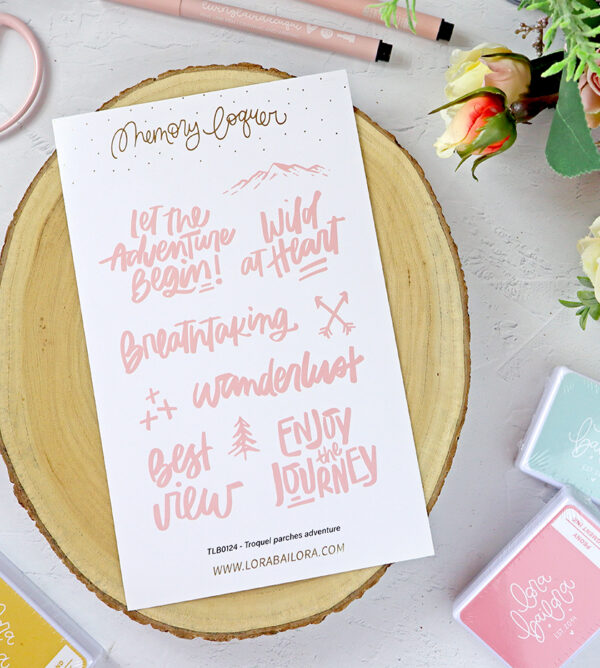 memory loquer
Let the
Adventure
Begin!
Wild
at Heart
Breathtaking
wanderlust
Best
view
Enjoy
the
Journey
TLB0124 - Troquel parches adventure
WWW.LORABAILORA.COM
PEONY
PIGMENT INK
lora
bailora
EST. 2014